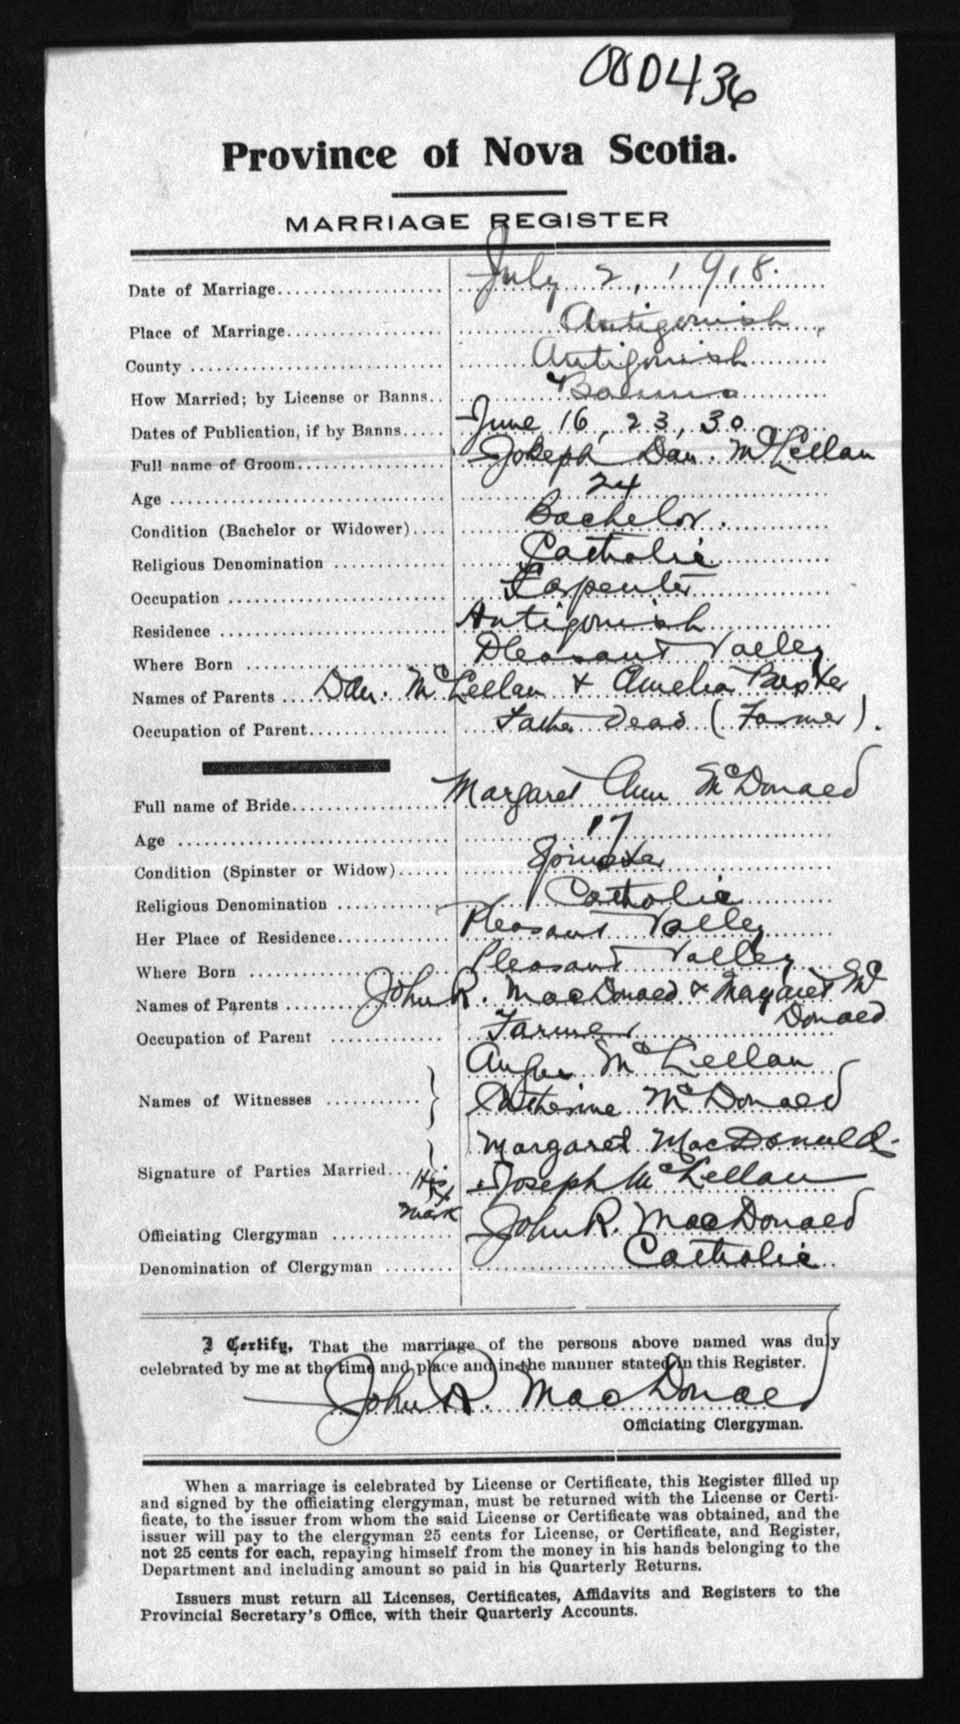 000436
Province of Nova Scotia.
MARRIAGE REGISTER
Date of Marriage July 2, 1918.
Place of Marriage Antigonish,
County Antigonish
How Married; by License or Banns Banns
Dates of Publication, if by Banns June 16, 23, 30
Full name of Groom Joseph Dan. McLellan
Age 24
Condition (Bachelor or Widower) Bachelor.
Religious Denomination Catholic
Occupation Carpenter
Residence Antigonish
Where Born Pleasant Valley
Names of Parents Dan. McLellan & Amelia
Occupation of Parent Father Dead (Farmer).
Full name of Bride Margaret Ann McDonald
Age 17
Condition (Spinster or Widow) Spinster
Religious Denomination Catholic
Her Place of Residence Pleasant Valley
Where Born Pleasant Valley
Names of Parents John R. MacDonald & Margaret Mc
Donald
Occupation of Parent Farmer
Angus McLellan
Names of Witnesses Catherine McDonald
Margaret MacDonald-
Signature of Parties Married His x Joseph McLellan
mark
Officiating Clergyman John R. MacDonald
Denomination of Clergyman Catholic
I Certify, That the marriage of the persons above named was duly
celebrated by me at the time and place and in the manner stated in this Register.
John R. MacDonald
Officiating Clergyman.
When a marriage is celebrated by License or Certificate, this Register filled up
and signed by the officiating clergyman, must be returned with the License or Certi-
ficate, to the issuer from whom the said License or Certificate was obtained, and the
issuer will pay to the clergyman 25 cents for License, or Certificate, and Register,
not 25 cents for each, repaying himself from the money in his hands belonging to the
Department and including amount so paid in his Quarterly Returns.
Issuers must return all Licenses, Certificates, Affidavits and Registers to the
Provincial Secretary's Office, with their Quarterly Accounts.